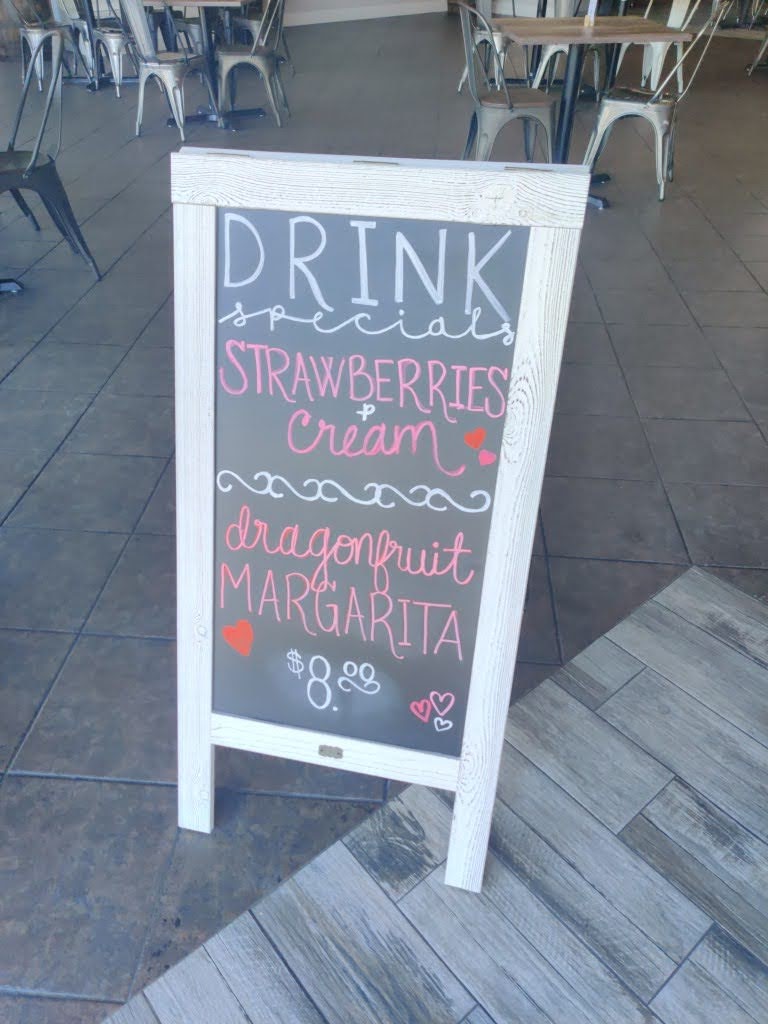 DRINK
specials
STRAWBERRIES
&
cream
dragonfruit
MARGARITA
$8.00